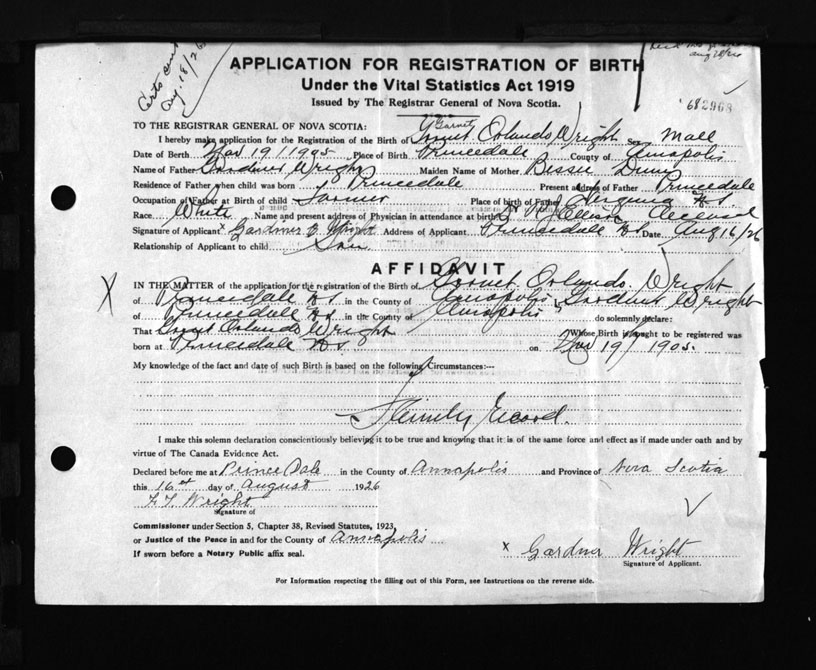 Certs sent
Aug. 18/26
aug 28/26
APPLICATION FOR REGISTRATION OF BIRTH
Under the Vital Statistics Act 1919
Issued by The Registrar General of Nova Scotia.
TO THE REGISTRAR GENERAL OF NOVA SCOTIA:
Garnet
I hereby make application for the Registration of the Birth of Garnet Orlando Wright Sex Male
Date of Birth 19/1905 Place of Birth Princedale County of Annapolis
Name of Father Gardner Wright Maiden Name of Mother Bessie Dunn
Residence of Father when child was born Princedale Present address of Father Princedale
Occupation of Father at Birth of child Farmer Place of birth of Father N.S.
Race White Name and present address of Physician in attendance at birth Dr
Signature of Applicant x Gardiner Wright Address of Applicant Princedale NS Date Aug 16/26
Relationship of Applicant to child Son
AFFIDAVIT
IN THE MATTER of the application for the registration of the Birth of Garnet Orlando Wright
X of Princedale N.S. in the County of Annapolis Gardner Wright
of Princedale N.S. in the County of Annapolis do solemnly declare:
That Garnet Orlando Wright Whose Birth is sought to be registered was
born at Princedale N.S. on 19/1905.
My knowledge of the fact and date of such Birth is based on the following Circumstances:—
Family Record.
I make this solemn declaration conscientiously believing it to be true and knowing that it is of the same force and effect as if made under oath and by
virtue of The Canada Evidence Act.
Declared before me at Prince Dale in the County of Annapolis and Province of Nova Scotia
this 16th day of August 1926
Wright
Signature of
Commissioner under Section 5, Chapter 38, Revised Statutes, 1923,
or Justice of the Peace in and for the County of Annapolis
If sworn before a Notary Public affix seal.
x Gardner Wright
Signature of Applicant.
For Information respecting the filling out of this Form, see Instructions on the reverse side.